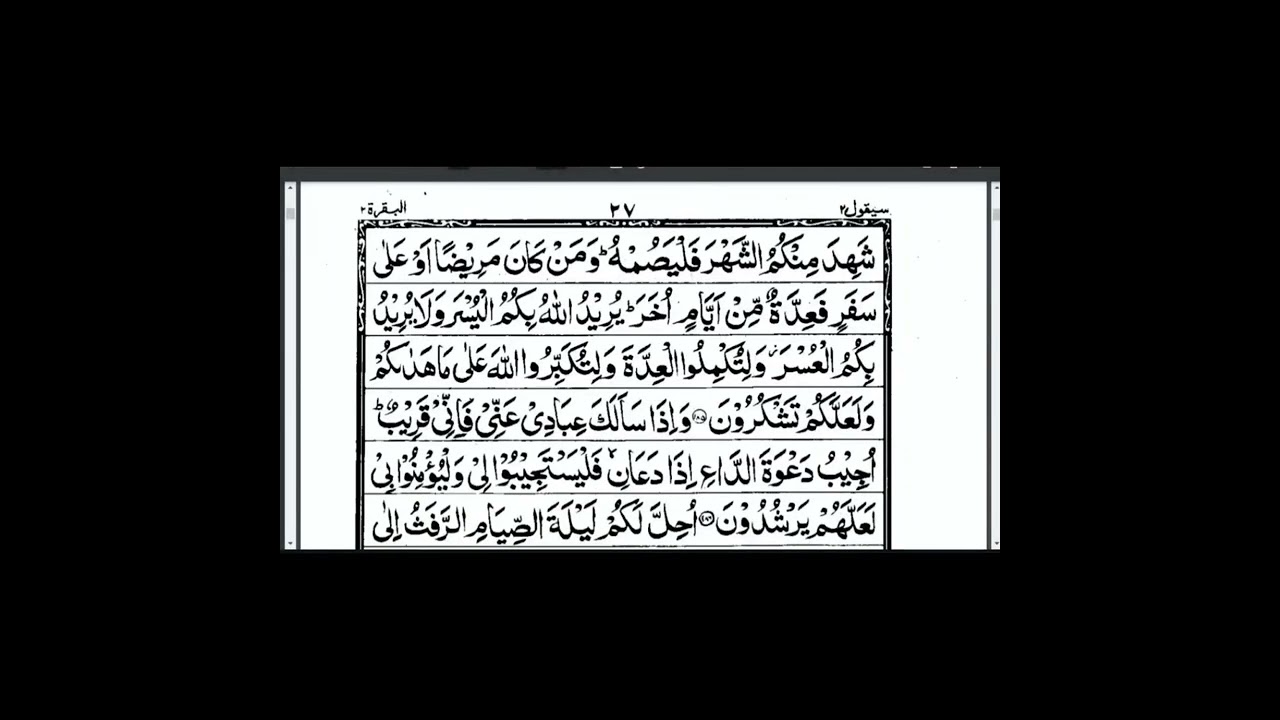 سيقول٢ ٢٧ البقرة٢
شَهِدَ مِنْكُمُ الشَّهْرَ فَلْيَصُمْهُ ؕ وَمَنْ كَانَ مَرِيْضًا اَوْ عَلٰى
سَفَرٍ فَعِدَّةٌ مِّنْ اَيَّامٍ اُخَرَ ؕ يُرِيْدُ اللّٰهُ بِكُمُ الْيُسْرَ وَلَا يُرِيْدُ
بِكُمُ الْعُسْرَ ۫ وَلِتُكْمِلُوا الْعِدَّةَ وَلِتُكَبِّرُوا اللّٰهَ عَلٰى مَا هَدٰىكُمْ
وَلَعَلَّكُمْ تَشْكُرُوْنَ ﴿١٨٥﴾ وَاِذَا سَاَلَكَ عِبَادِيْ عَنِّيْ فَاِنِّيْ قَرِيْبٌ ؕ
اُجِيْبُ دَعْوَةَ الدَّاعِ اِذَا دَعَانِ ۙ فَلْيَسْتَجِيْبُوْا لِيْ وَلْيُؤْمِنُوْا بِيْ
لَعَلَّهُمْ يَرْشُدُوْنَ ﴿١٨٦﴾ اُحِلَّ لَكُمْ لَيْلَةَ الصِّيَامِ الرَّفَثُ اِلٰى